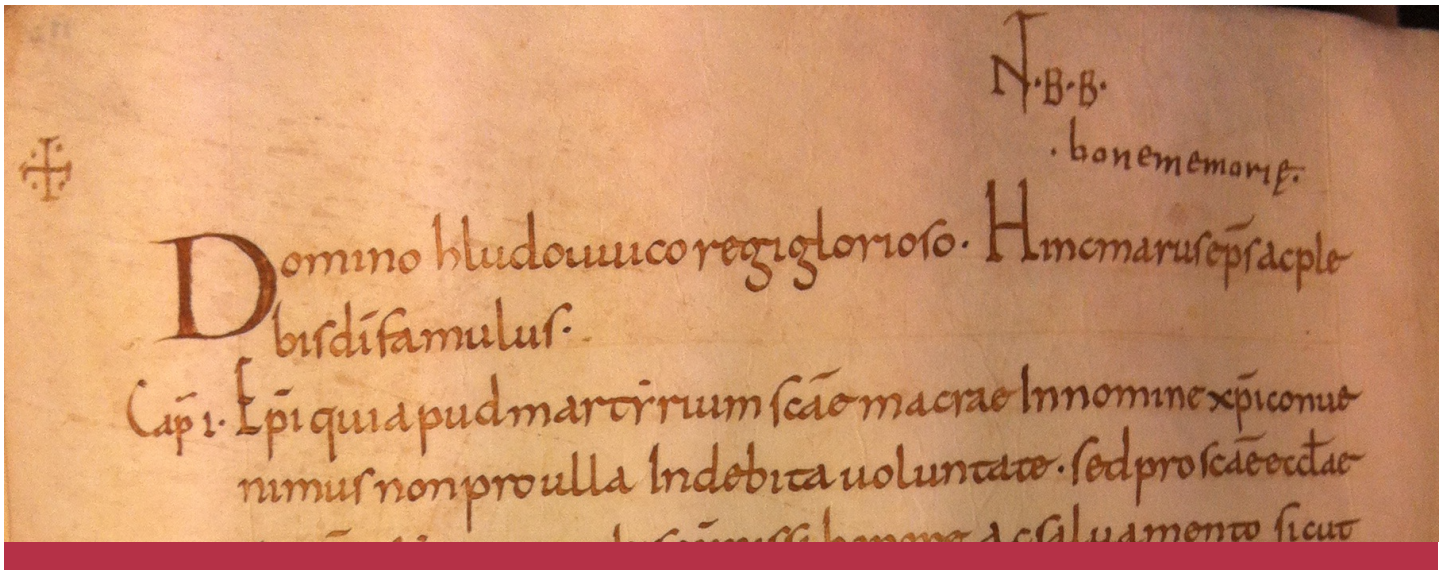 N·B·B·
· bonememorię.
Domino hludouuico regi glorioso · Hincmarus ep̄s ac ple
bis dī famulus·
Cap̄ 1· Ep̄i qui apud martẏrium sc̄ae macrae In nomine xp̄i conue
nimus non pro ulla Indebita uoluntate · sed pro sc̄ae eccl̄ae
honore ac saluamento sicut